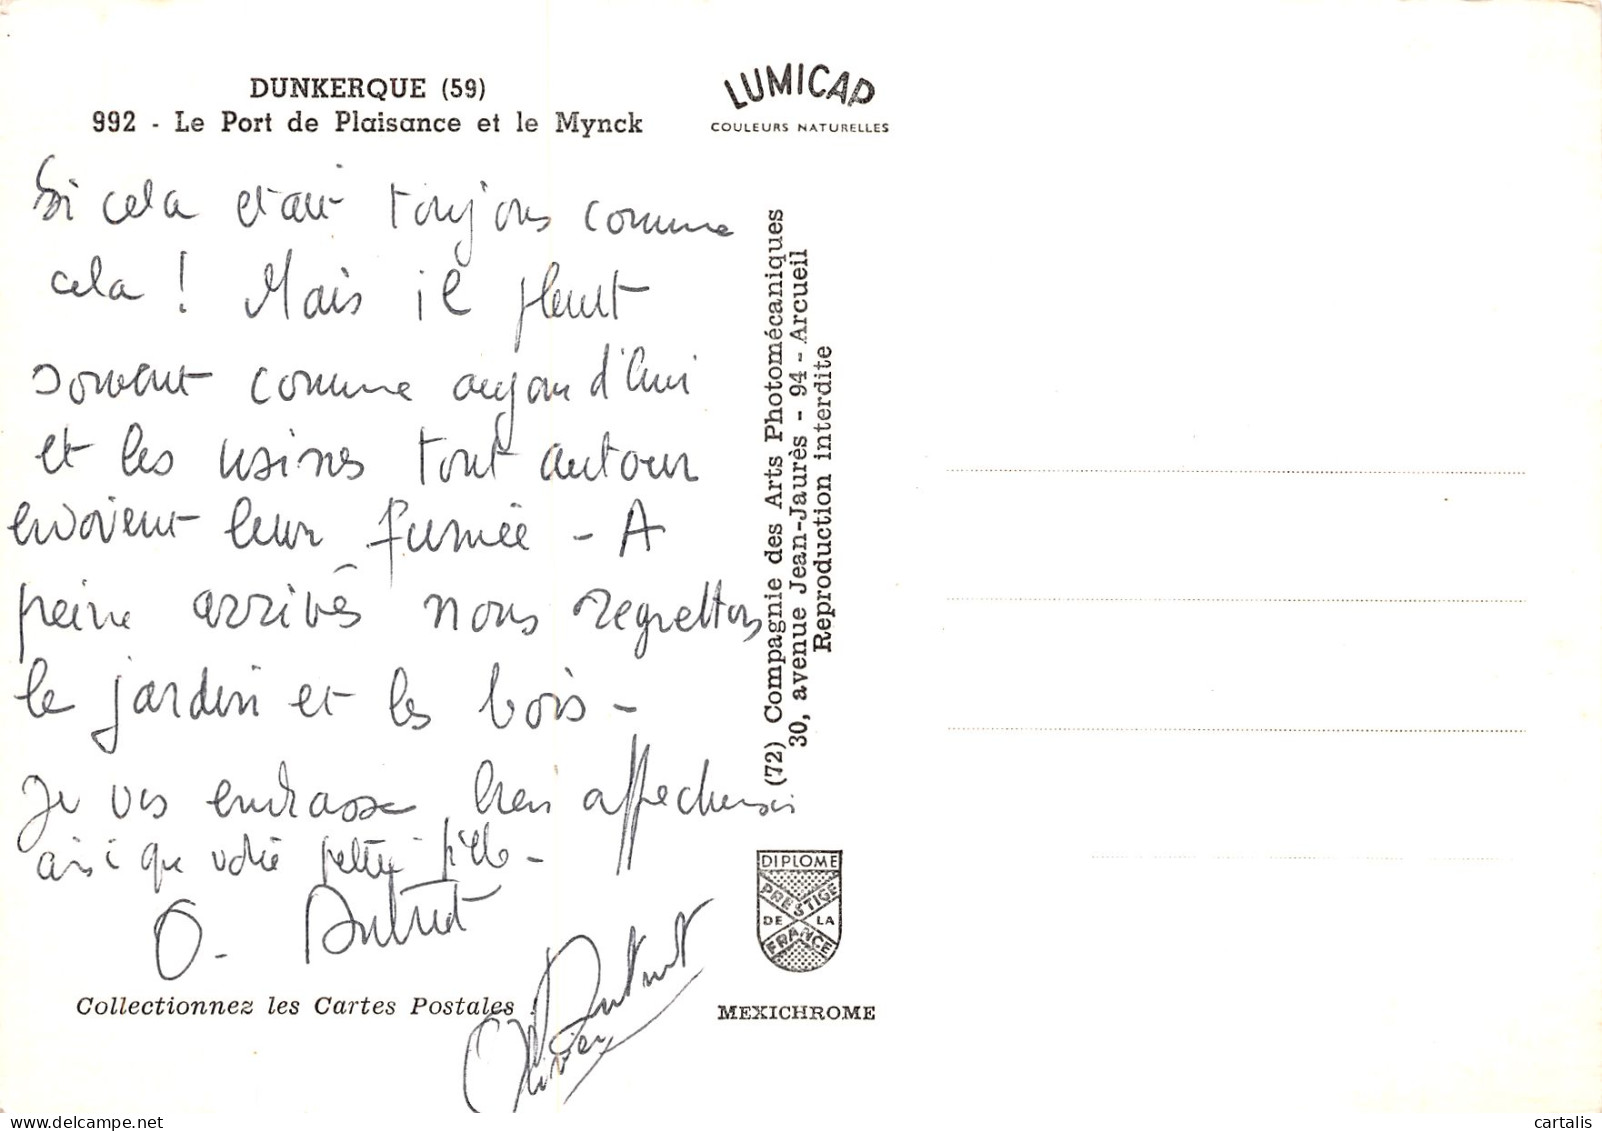 DUNKERQUE (59)
992 - Le Port de Plaisance et le Mynck
LUMICAP
COULEURS NATURELLES
Si cela etait toujours comme
cela ! Mais il pleut
souvent comme aujourd'hui
et les usines tout autour
envoient leur fumée - A
peine arrivés nous regrettons
le jardin et les bois -
Je vous embrasse bien affectueusement
ainsi que votre petite fille -
O.
Olivier
Collectionnez les Cartes Postales
(72) Compagnie des Arts Photomécaniques
30, avenue Jean-Jaurès - 94 - Arcueil
Reproduction interdite
DIPLOME
PRESTIGE
DE LA
FRANCE
MEXICHROME
cartalis.com